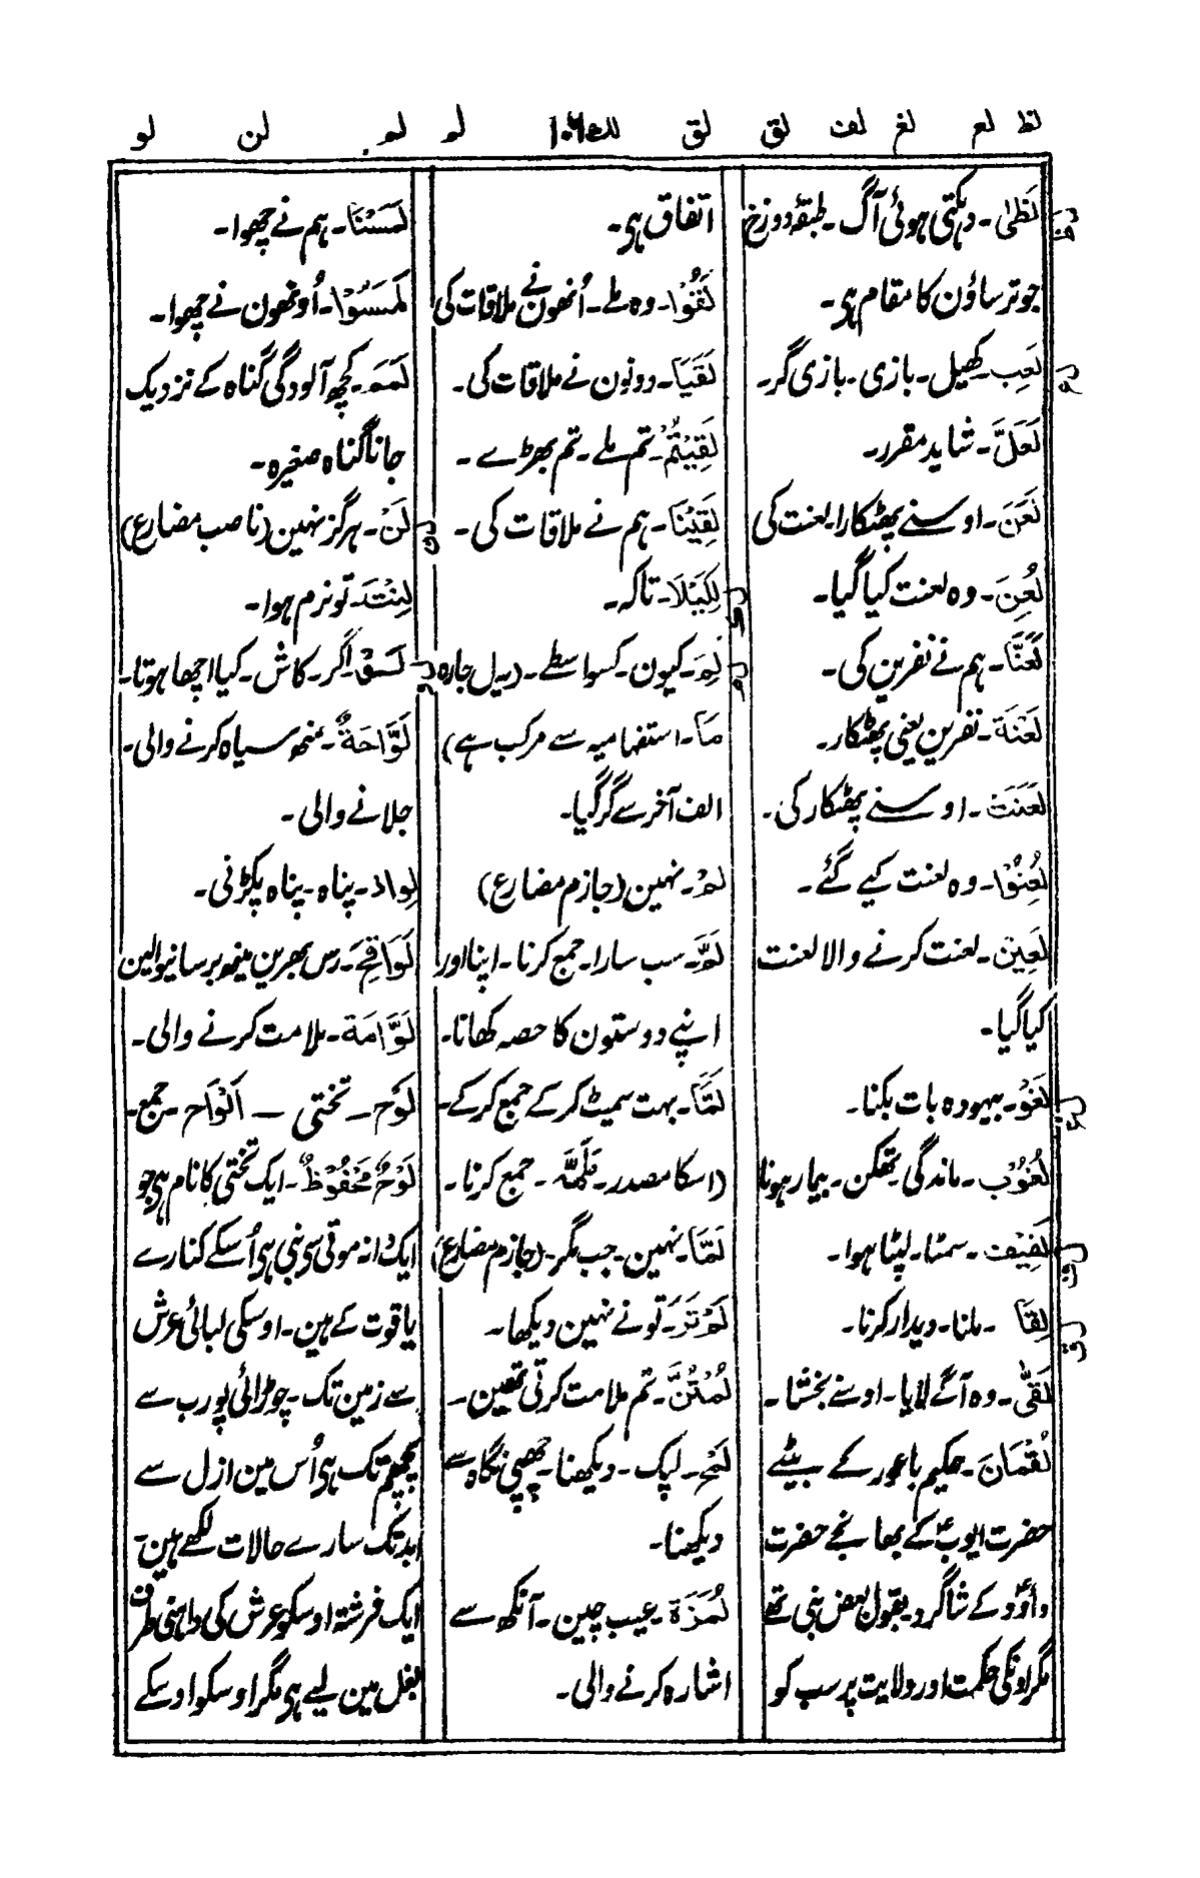 لظ لع لغ لف لق لق لم لم لن لو
لَظٰی۔ دہکتی ہوئی آگ۔ طبقۂ دوزخ
جو ترساؤن کا مقام ہی۔
لَعِب۔ کھیل۔ بازی۔ بازی گر۔
لَعَلَّ۔ شاید مقرر۔
لَعَنَ۔ اوسنے پھٹکارا۔ لعنت کی
لُعِنَ۔ وہ لعنت کیا گیا۔
لَعَنَّا۔ ہم نے نفرین کی۔
لَعْنَة۔ نفرین یعنی پھٹکار۔
لَعَنَتْ۔ اوسنے پھٹکار کی۔
لُعِنُوْا۔ وہ لعنت کیے گئے۔
لَعِیْن۔ لعنت کرنے والا لعنت
کیا گیا۔
لَغْو۔ بیہودہ بات بکنا۔
لُغُوْب۔ ماندگی۔ تھکن۔ بیمار ہونا
لَفِیْف۔ سمٹا۔ لپٹا ہوا۔
لِقَا۔ ملنا۔ دیدار کرنا۔
لَقّٰی۔ وہ آگے لایا۔ اوسنے بخشا۔
لُقْمَان۔ حکیم باعور کے بیٹے
حضرت ایوبؑ کے بھانجے حضرت
داؤدؑ کے شاگرد۔ بقول بعض نبی تھے
مگر اونکی حکمت اور ولایت پر سب کو
اتفاق ہی۔
لَقُوْا۔ وہ ملے۔ اُنھون نے ملاقات کی
لَقِیَا۔ دونون نے ملاقات کی۔
لَقِیْتُمْ۔ تم ملے۔ تم بھڑے۔
لَقِیْنَا۔ ہم نے ملاقات کی۔
لِکَیْلَا۔ تاکہ۔
لِمَ۔ کیون۔ کسواسطے۔ (یہ ل جارہ
مَا۔ استفہامیہ سے مرکب ہے)
الف آخر سے گر گیا۔
لَمْ۔ نہین (جازم مضارع)
لَمّ۔ سب سارا۔ جمع کرنا۔ اپنا اور
اپنے دوستون کا حصہ کھانا۔
لَمَّا۔ بہت سمیٹ کر کے جمع کر کے۔
(اسکا مصدر۔ ۔ جمع کرنا۔
لَمَّا۔ نہین۔ جب مگر۔ (جازم مضارع)
لَمْ تَرَ۔ تو نے نہین دیکھا۔
لُمْتُنَّ۔ تم ملامت کرتی تھین۔
لَمْح۔ لپک۔ دیکھنا۔ چھپی نگاہ سے
دیکھنا۔
لُمَزَة۔ عیب چین۔ آنکھ سے
اشارہ کرنے والی۔
لَمَسْنَا۔ ہم نے چھوا۔
لَمَسُوْا۔ اُونھون نے چھوا۔
لَمَم۔ کچھ آلودگی گناہ کے نزدیک
جانا گناہ صغیرہ۔
لَنْ۔ ہرگز نہین (ناصب مضارع)
لِنْتَ۔ تو نرم ہوا۔
لَوْ۔ اگر۔ کاش۔ کیا اچھا ہوتا۔
لَوَّاحَةٌ۔ منھ سیاہ کرنے والی۔
جلانے والی۔
لِواذ۔ پناہ۔ پناہ پکڑنی۔
لَوَاقِحَ۔ رس بھرین مینھ برسانیوالین
لَوَّامَة۔ ملامت کرنے والی۔
لَوْح۔ تختی۔ اَلْوَاح۔ جمع۔
لَوْحٌ مَحْفُوْظٌ۔ ایک تختی کا نام ہی جو
ایک دانہ موتی سی بنی ہی اُسکے کنارے
یاقوت کے ہین۔ اوسکی لبائی عرش
سے زمین تک۔ چوڑائی پورب سے
پچھم تک ہی اُس مین ازل سے
ابد تک سارے حالات لکھے ہین۔
ایک فرشتہ اوسکو عرش کی داہنی طرف
بغل مین لیے ہی مگر اوسکو اوسکے